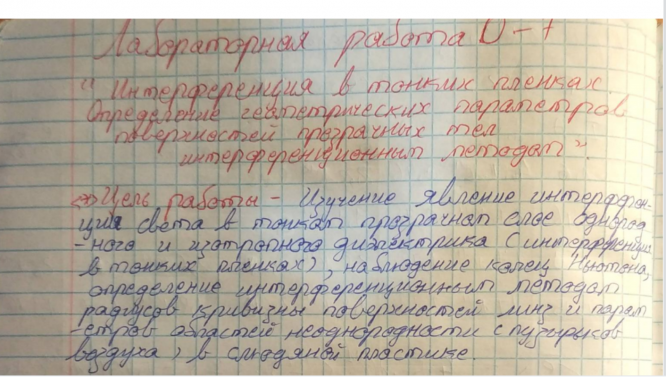 Лабораторная работа О-1
"Интерференция в тонких пленках.
Определение геометрических параметров
поверхностей прозрачных тел
интерференционным методом".
Цель работы - Изучение явление интерферен-
ции света в тонком прозрачном слое однород
-ного и изотропного диэлектрика (интерференция
в тонких пленках), наблюдение колец Ньютона,
определение интерференционным методом
радиусов кривизны поверхностей линз и парам
-етров областей неоднородности (пузырьков
воздуха) в слюдяной пластике.